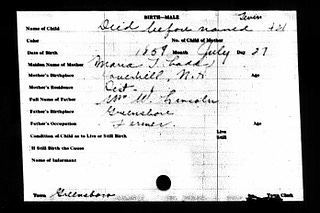 BIRTH—MALE
Twin
Name of Child Died before named
Color No. of Child of Mother
Date of Birth 1859 Month July Day 27
Maiden Name of Mother Maria T. Ladd
Mother's Birthplace Haverhill, N.H. Age
Mother's Residence
Full Name of Father Wm W. Lincoln
Father's Birthplace Greensboro Age
Father's Occupation Farmer
Condition of Child as to Live or Still Birth Live
Still
If Still Birth the Cause
Name of Informant
Town Greensboro Town Clerk